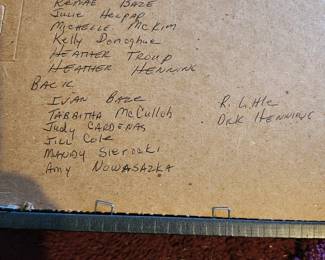 Baze
Julie
Michelle McKim
Kelly Donoghue
Heather Troup
Heather Henning
Back
Ivan Baze
Tabbitha McCulloh
Judy Cardenas
Jill Cole
Mandy Sierocki
Amy Nowaszka
R. Little
Dick Henning